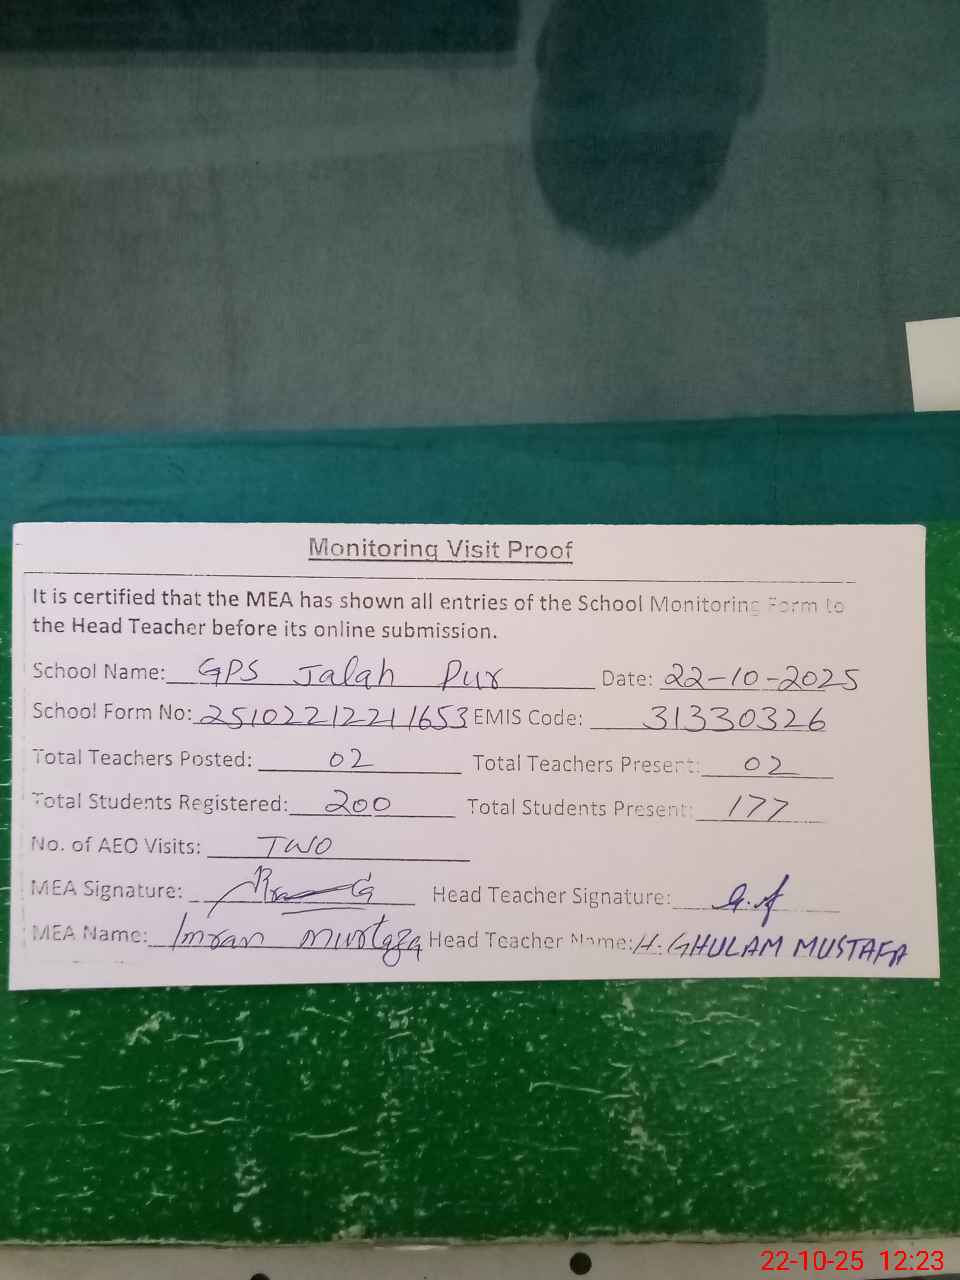 Monitoring Visit Proof
It is certified that the MEA has shown all entries of the School Monitoring Form to
the Head Teacher before its online submission.
School Name: GPS Jalah Pur Date: 22-10-2025
School Form No: 25102212211653 EMIS Code: 31330326
Total Teachers Posted: 02 Total Teachers Present: 02
Total Students Registered: 200 Total Students Present: 177
No. of AEO Visits: TWO
MEA Signature: Head Teacher Signature: G.A
MEA Name: Imran Murtaza Head Teacher Name: H. GHULAM MUSTAFA
22-10-25 12:23